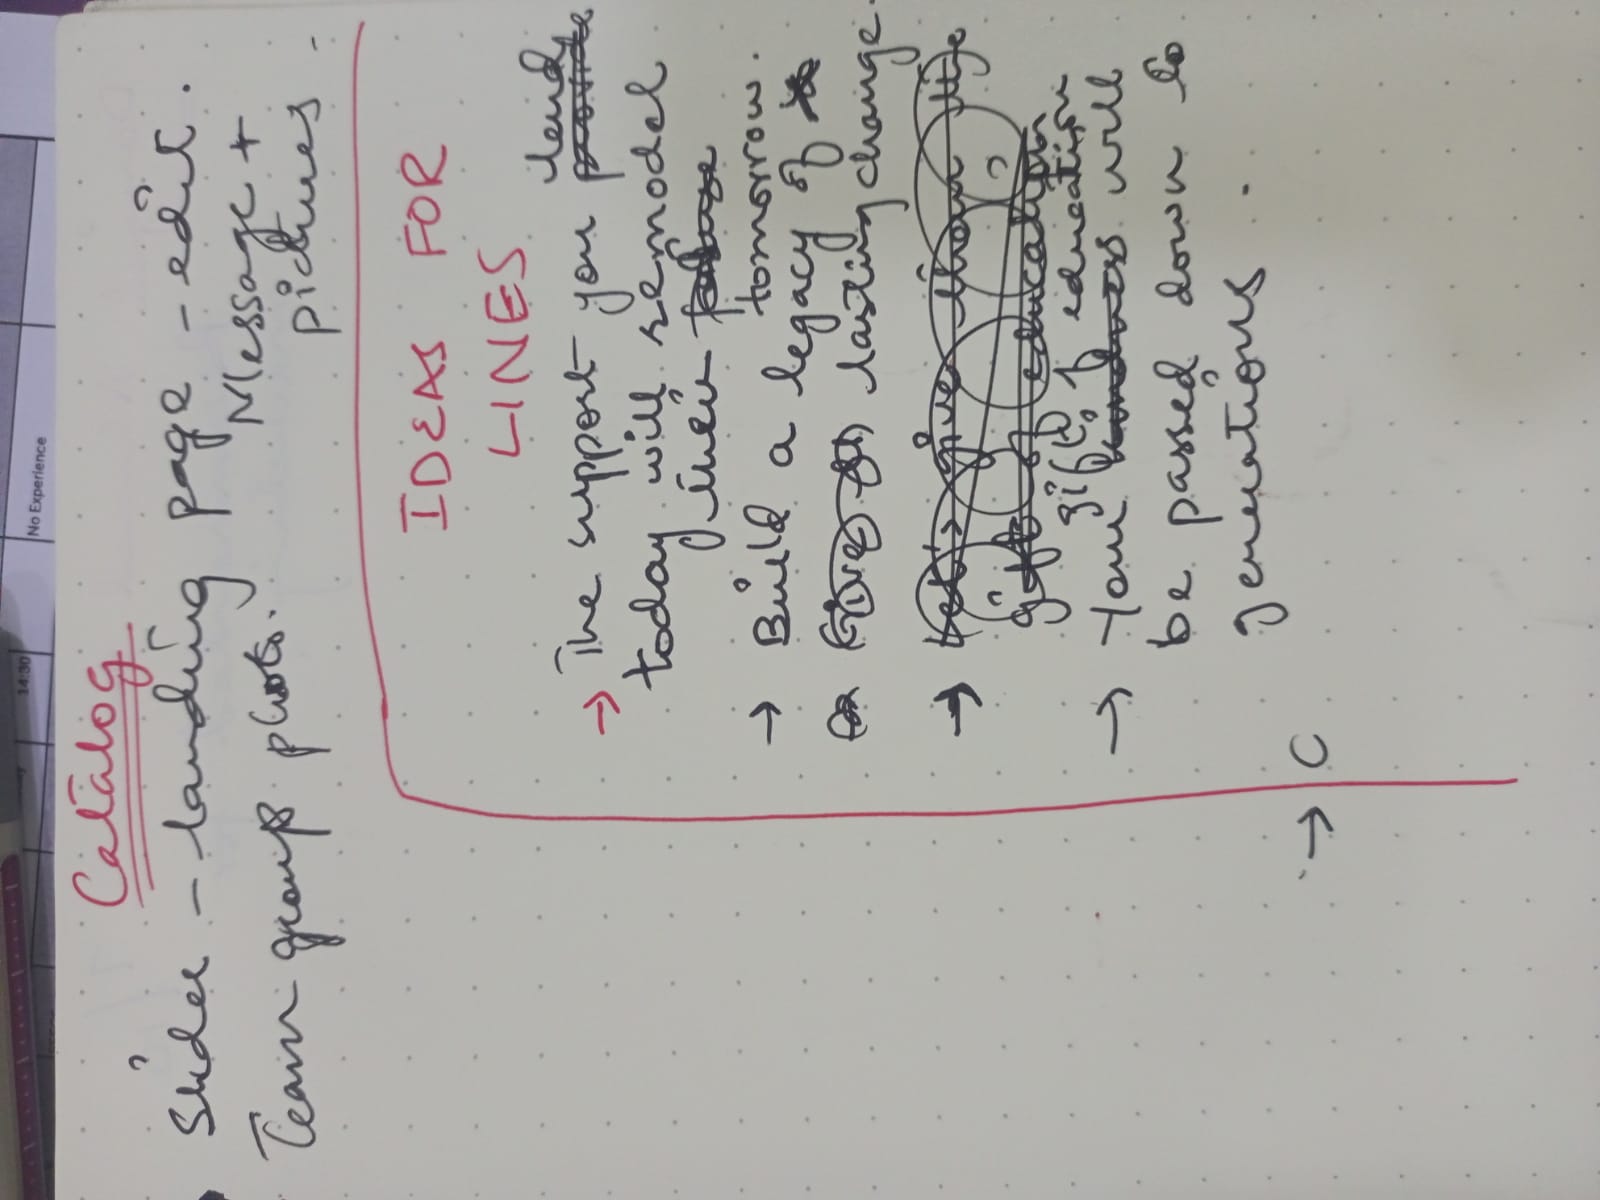 14:30
No Experience
Catalog
Slider – landing page – edit.
Message +
Team group photo.
pictures.
IDEAS FOR
LINES
lend
→ The support you provide
today will remodel
their future
tomorrow.
→ Build a legacy of
Give lasting change.
→ Let's give them the
gift of education
gift of education
→ Your kindness will
be passed down to
generations.
→ C